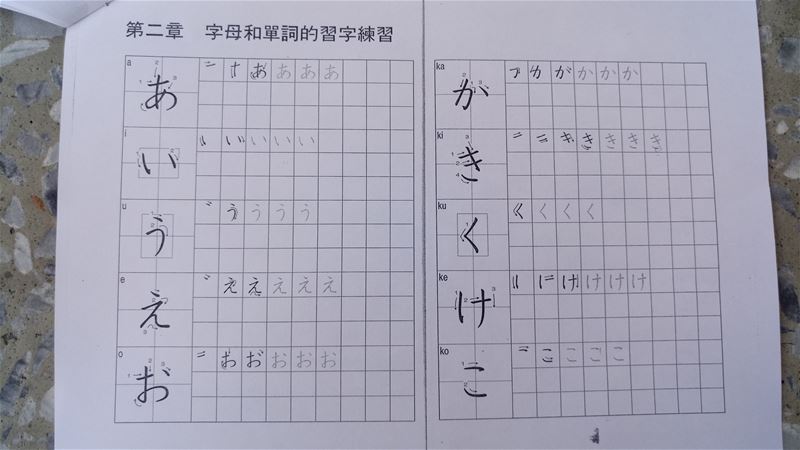 第二章 字母和單詞的習字練習
a
あ あ あ あ あ
i
い い い い い
u
う う う う う
e
え え え え え え
o
お お お お お お
ka
か か か か か
ki
き き き き き
ku
く く く く く
ke
け け け け け
ko
こ こ こ こ こ